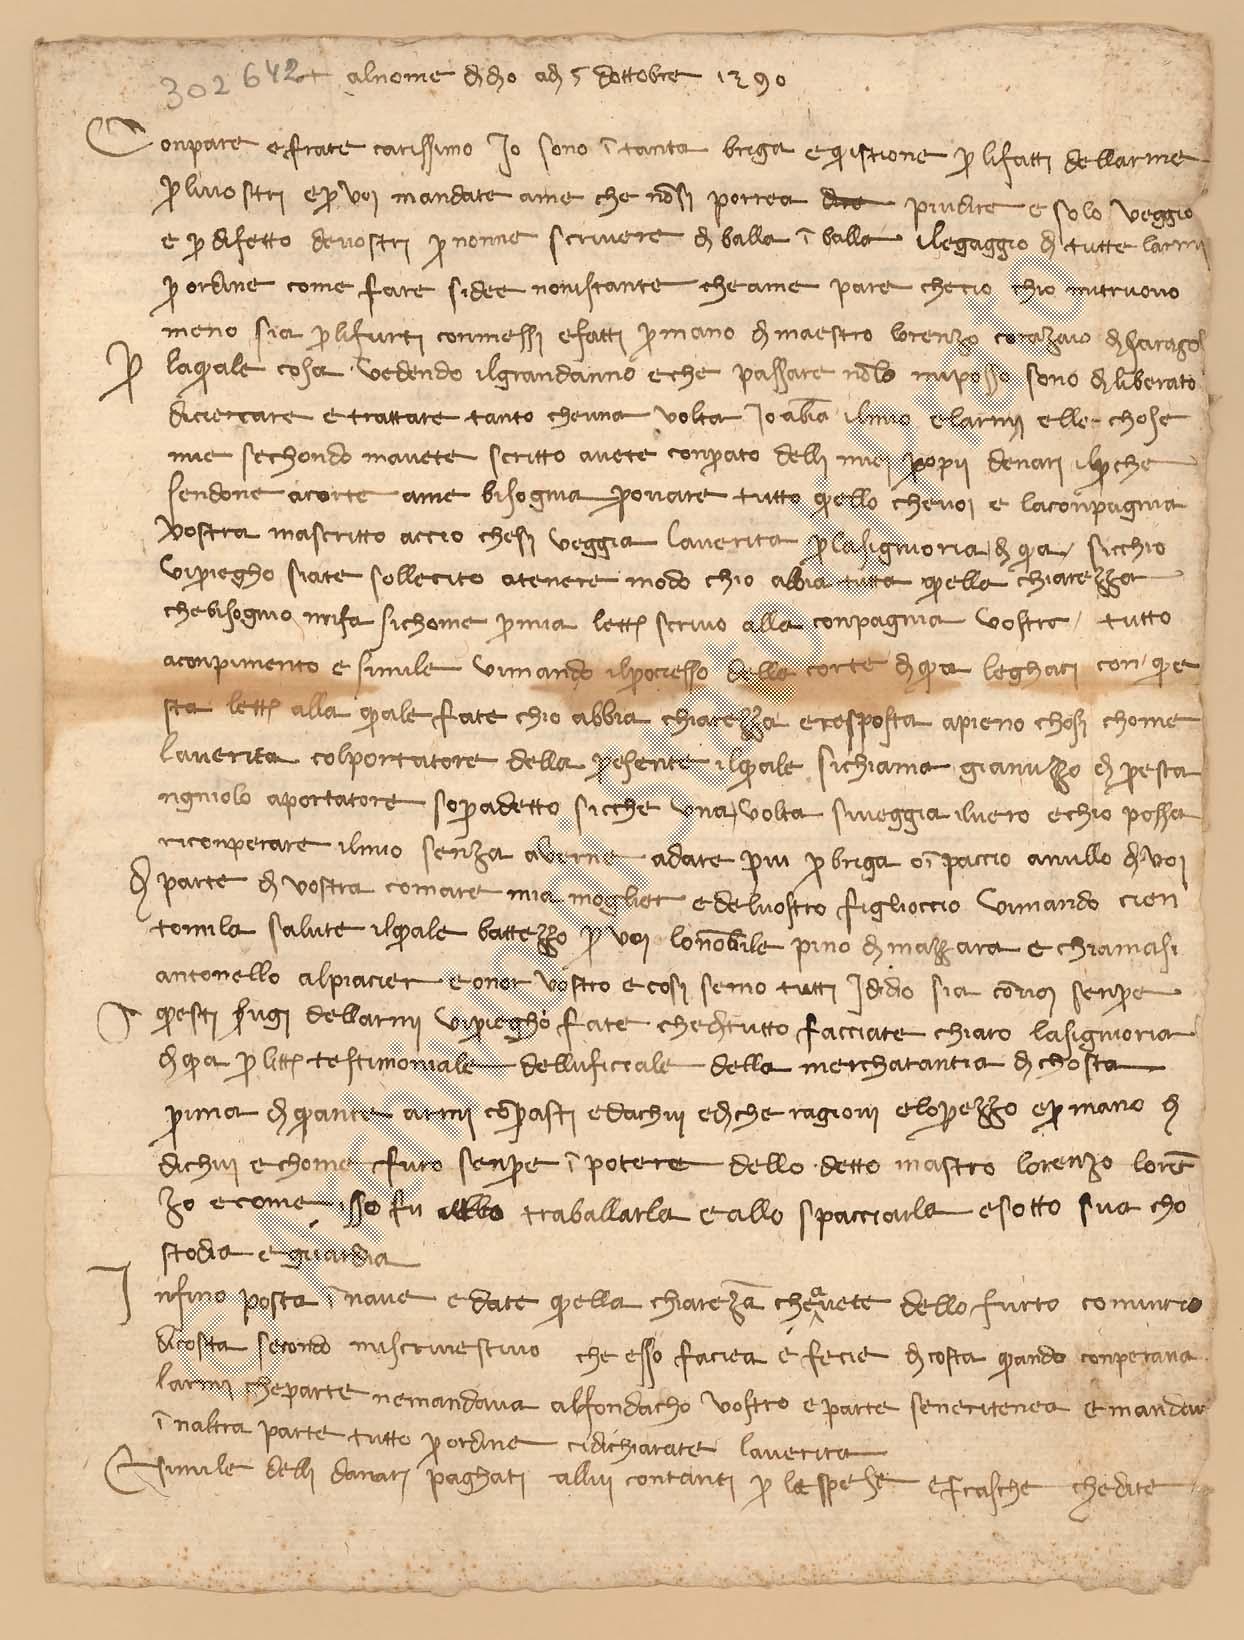 302642
+ al nome d dio ad 5 dottobre 1390
Conpare e frate carissimo Jo sono ī tanta briga e qistione p lifatti dellarme
p livostri e p voi mandate ame che nōsi porrea dire piudire e solo veggio
e p difetto devostri p nonne scrivere d balla ī balla ilegaggio d tutte larmi
p ordine come fare sidee nonistante cheame pare checio chio mitruovo
meno sia p lifurti conmessi e fatti p mano d maestro lorenzo corazaio d saragos
p laquale cosa vedendo ilgrandanno e che passare nōlo miposso sono d liberato
diciercare e trattare tanto cheuna volta Jo abia ilmio e larmi elle chose
mie sechondo mavete scritto avete conprato delli miei propii denari ilpche
sendone acorte ame bisogna provare tutto qello chevoi e laconpagnia
vostra mascritto accio chesi veggia laverita p lasignioria d qua sicchio
vipriegho siate sollecito atenere modo chio abbia tutta qella chiarezza
chebisogno mifa sichome p mia lett scrivo alla conpagnia vostra tutto
aconpimento e simile vimando ilprociesso della corte d qua leghati con que
sta lett alla quale fate chio abbia chiarezza eresposta apieno chosi chome
laverita colportatore della presente ilquale sichiama gianuzzo d pesta
ngniolo aportatore sopradetto sicche una volta siveggia ilvero echio possa
riconperare ilmio senza averne adare piu p briga o īpaccio anullo d voi
d parte d vostra comare mia moglier e delvostro figlioccio vimando cien
tomila salute ilquale battezzo p voi lonobile pino d mazzara e chiamasi
antonello alpiacier e onor vostro e cosi semo tutti Jddio sia cōvoi senpre
questi furgi dellarmi vipriegho fate chedtutto facciate chiaro lasignioria
d qua p litt testimoniale dellificiale della merchatantia d chosta
prima d quante armi cōprasti edachui edche ragioni elopezzo epmano d
dichui e chome furo senpre ī potere dello detto mastro lorenzo lorē
zo e come isso fu allo traballarla e allo spacciarla esotto sua cho
stodia e guardia
Jnfino posta ī nave e date qella chiareza cheavete dello furto cominció
dicosta secondo miscrivestivo che esso faciea e fecie d costa quando conperava
larmi cheparte nemandava alfondacho vostro e parte seneritenea e mandav
īnaltra parte tutto p ordine cidichiarate laverita
E simile delli danari paghati allui contanti p le spese e frasche chedite